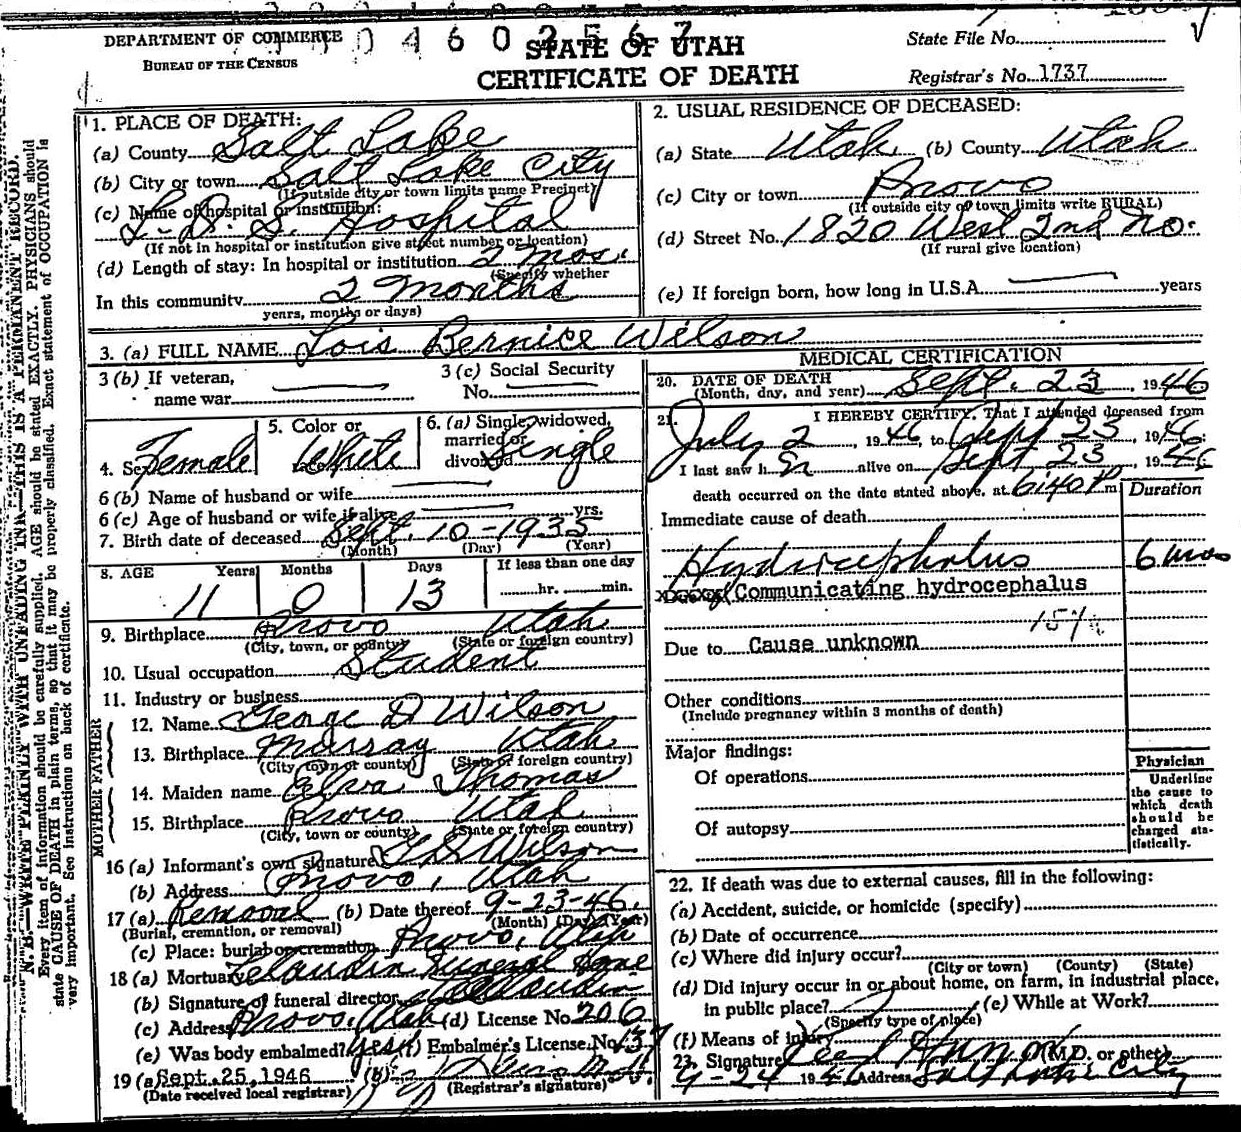 DEPARTMENT OF COMMERCE
BUREAU OF THE CENSUS
0 4 6 0 2 5 6 7
STATE OF UTAH
CERTIFICATE OF DEATH
State File No.
Registrar's No. 1737
N. B.—WRITE PLAINLY WITH UNFADING INK—THIS IS A PERMANENT RECORD.
Every item of information should be carefully supplied. AGE should be stated EXACTLY. PHYSICIANS should
state CAUSE OF DEATH in plain terms, so that it may be properly classified. Exact statement of OCCUPATION is
very important. See instructions on back of certificate.
1. PLACE OF DEATH:
(a) County Salt Lake
(b) City or town Salt Lake City
(If outside city or town limits name Precinct)
(c) Name of hospital or institution:
L. D. S. Hospital
(If not in hospital or institution give street number or location)
(d) Length of stay: In hospital or institution 2 mos.
(Specify whether
In this community 2 months
years, months or days)
2. USUAL RESIDENCE OF DECEASED:
(a) State Utah (b) County Utah
(c) City or town Provo
(If outside city or town limits write RURAL)
(d) Street No. 1820 West 2nd No.
(If rural give location)
(e) If foreign born, how long in U.S.A. years
3. (a) FULL NAME Lois Bernice Wilson
3 (b) If veteran,
name war
3 (c) Social Security
No.
4. Sex Female
5. Color or
race White
6. (a) Single, widowed,
married or
divorced Single
6 (b) Name of husband or wife
6 (c) Age of husband or wife if alive yrs.
7. Birth date of deceased Sept. 10-1935
(Month) (Day) (Year)
8. AGE Years Months Days If less than one day
11 0 13 hr. min.
9. Birthplace Provo Utah
(City, town, or county) (State or foreign country)
10. Usual occupation Student
11. Industry or business
FATHER
12. Name George D Wilson
13. Birthplace Murray Utah
(City town or county) (State or foreign country)
MOTHER
14. Maiden name Elva Thomas
15. Birthplace Provo Utah
(City, town or county) (State or foreign country)
16 (a) Informant's own signature Wilson
(b) Address Provo, Utah
17 (a) Removal (b) Date thereof 9-23-46.
(Burial, cremation, or removal) (Month) (Day) (Year)
(c) Place: burial or cremation Provo, Utah
18 (a) Mortuary Claudin Funeral Home
(b) Signature of funeral director
(c) Address Provo, Utah (d) License No. 206
(e) Was body embalmed? yes (f) Embalmer's License No. 137
19 (a) Sept. 25, 1946 (b)
(Date received local registrar) (Registrar's signature)
MEDICAL CERTIFICATION
20. DATE OF DEATH
(Month, day, and year) Sept. 23, 1946
21. I HEREBY CERTIFY, That I attended deceased from
July 2, 1946, to Sept 23, 1946;
I last saw her alive on Sept 23, 1946
death occurred on the date stated above, at 6:40 P m
Duration
Immediate cause of death
Hydrocephalus 6 mos
Communicating hydrocephalus
Due to Cause unknown
Other conditions
(Include pregnancy within 3 months of death)
Major findings:
Of operations
Of autopsy
Physician
Underline
the cause to
which death
should be
charged sta-
tistically.
22. If death was due to external causes, fill in the following:
(a) Accident, suicide, or homicide (specify)
(b) Date of occurrence
(c) Where did injury occur?
(City or town) (County) (State)
(d) Did injury occur in or about home, on farm, in industrial place,
in public place? (e) While at Work?
(Specify type of place)
(f) Means of injury
23. Signature (M.D. or other)
9-24 1946 Address Salt Lake City